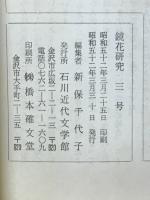 鏡花研究 三号
昭和五十二年三月二十五日 印刷
昭和五十二年三月三十日 発行
編集者 新保千代子
発行所 石川近代文学館
金沢市広坂二―二―
電話〇七六二―六二―
印刷所 ㈱橋本確文堂
金沢市大手町一―三五